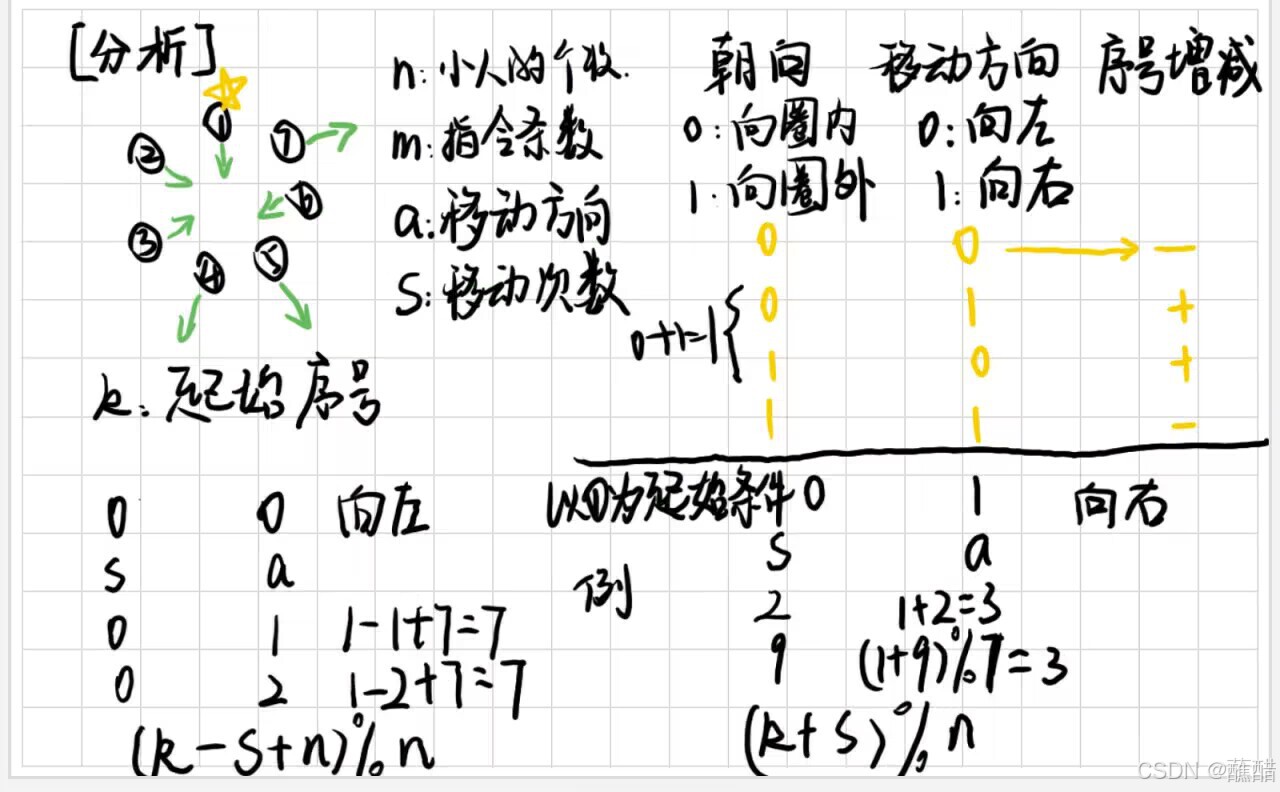 [分析]
① ② ③ ④ ⑤ ⑥ ⑦
n:小人的个数.
m:指令条数
a:移动方向
S:移动次数
k:起始序号
朝向 移动方向 序号增减
0:向圈内 0:向左
1:向圈外 1:向右
0 0 → −
0+1=1{ 0 1 +
1 0 +
1 1 −
0 0 向左
s a
0 1 1-1+7=7
0 2 1-2+7=7
(k-S+n)%n
以①为起始条件 0 1 向右
例 S a
2 1+2=3
9 (1+9)%7=3
(k+S)%n
CSDN @蘸醋